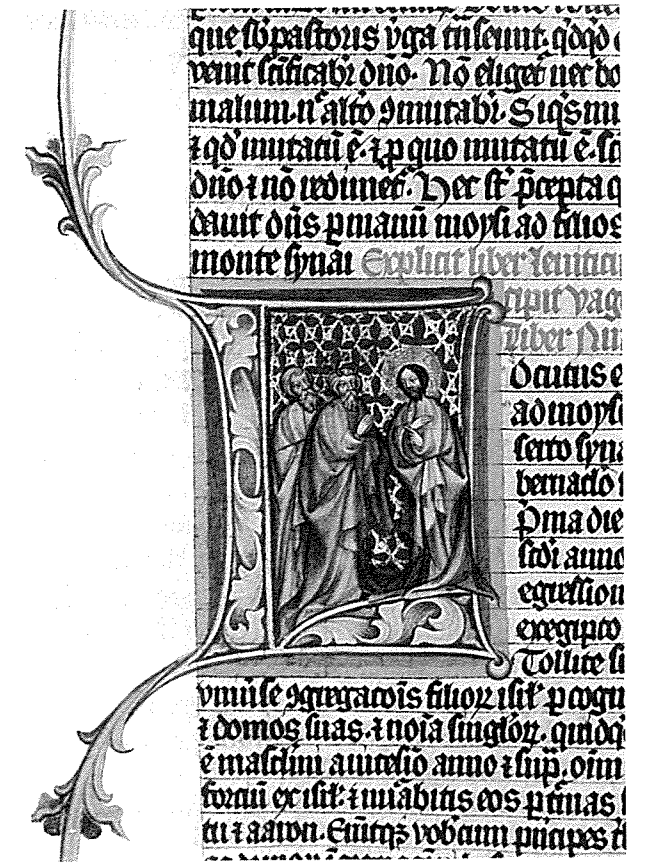 que sb̄ pastoris v̄ga t̄nseunt. q̇dq̇d
venit sc̄ificabr̄ dn̄o. Nō eliget̄ nec bo
malum. n̄ alt̄o ꝯmutabr̄. Siq̇s mu
⁊ qd̓ mutatū ē. ⁊ ꝓ quo mutatū ē. sc
dn̄o ⁊ nō redimet̄. Hec st̄ p̄cepta q
dauit dn̄s ꝑ manū moysi ad filios
monte synai Explicit liber leuitici
cipit vag
liber Nu
Locutus e
ad moyse
serto syna
bernaclō
p̄ma die
sc̄di anno
egression
ex egipto
Tollite s
vniu̓se ꝯgregacōis filioꝝ isrl̓ ꝑ cogn
⁊ domos suas. ⁊ noīa singl̓oꝝ. quidq̇
ē masclini a vicesīo anno ⁊ sup̄. oīm
fortiū ex isrl̓. ⁊ nūabitis eos ꝑ tmas
tu ⁊ aaron. Erūtqꝫ vobiscum pncipes